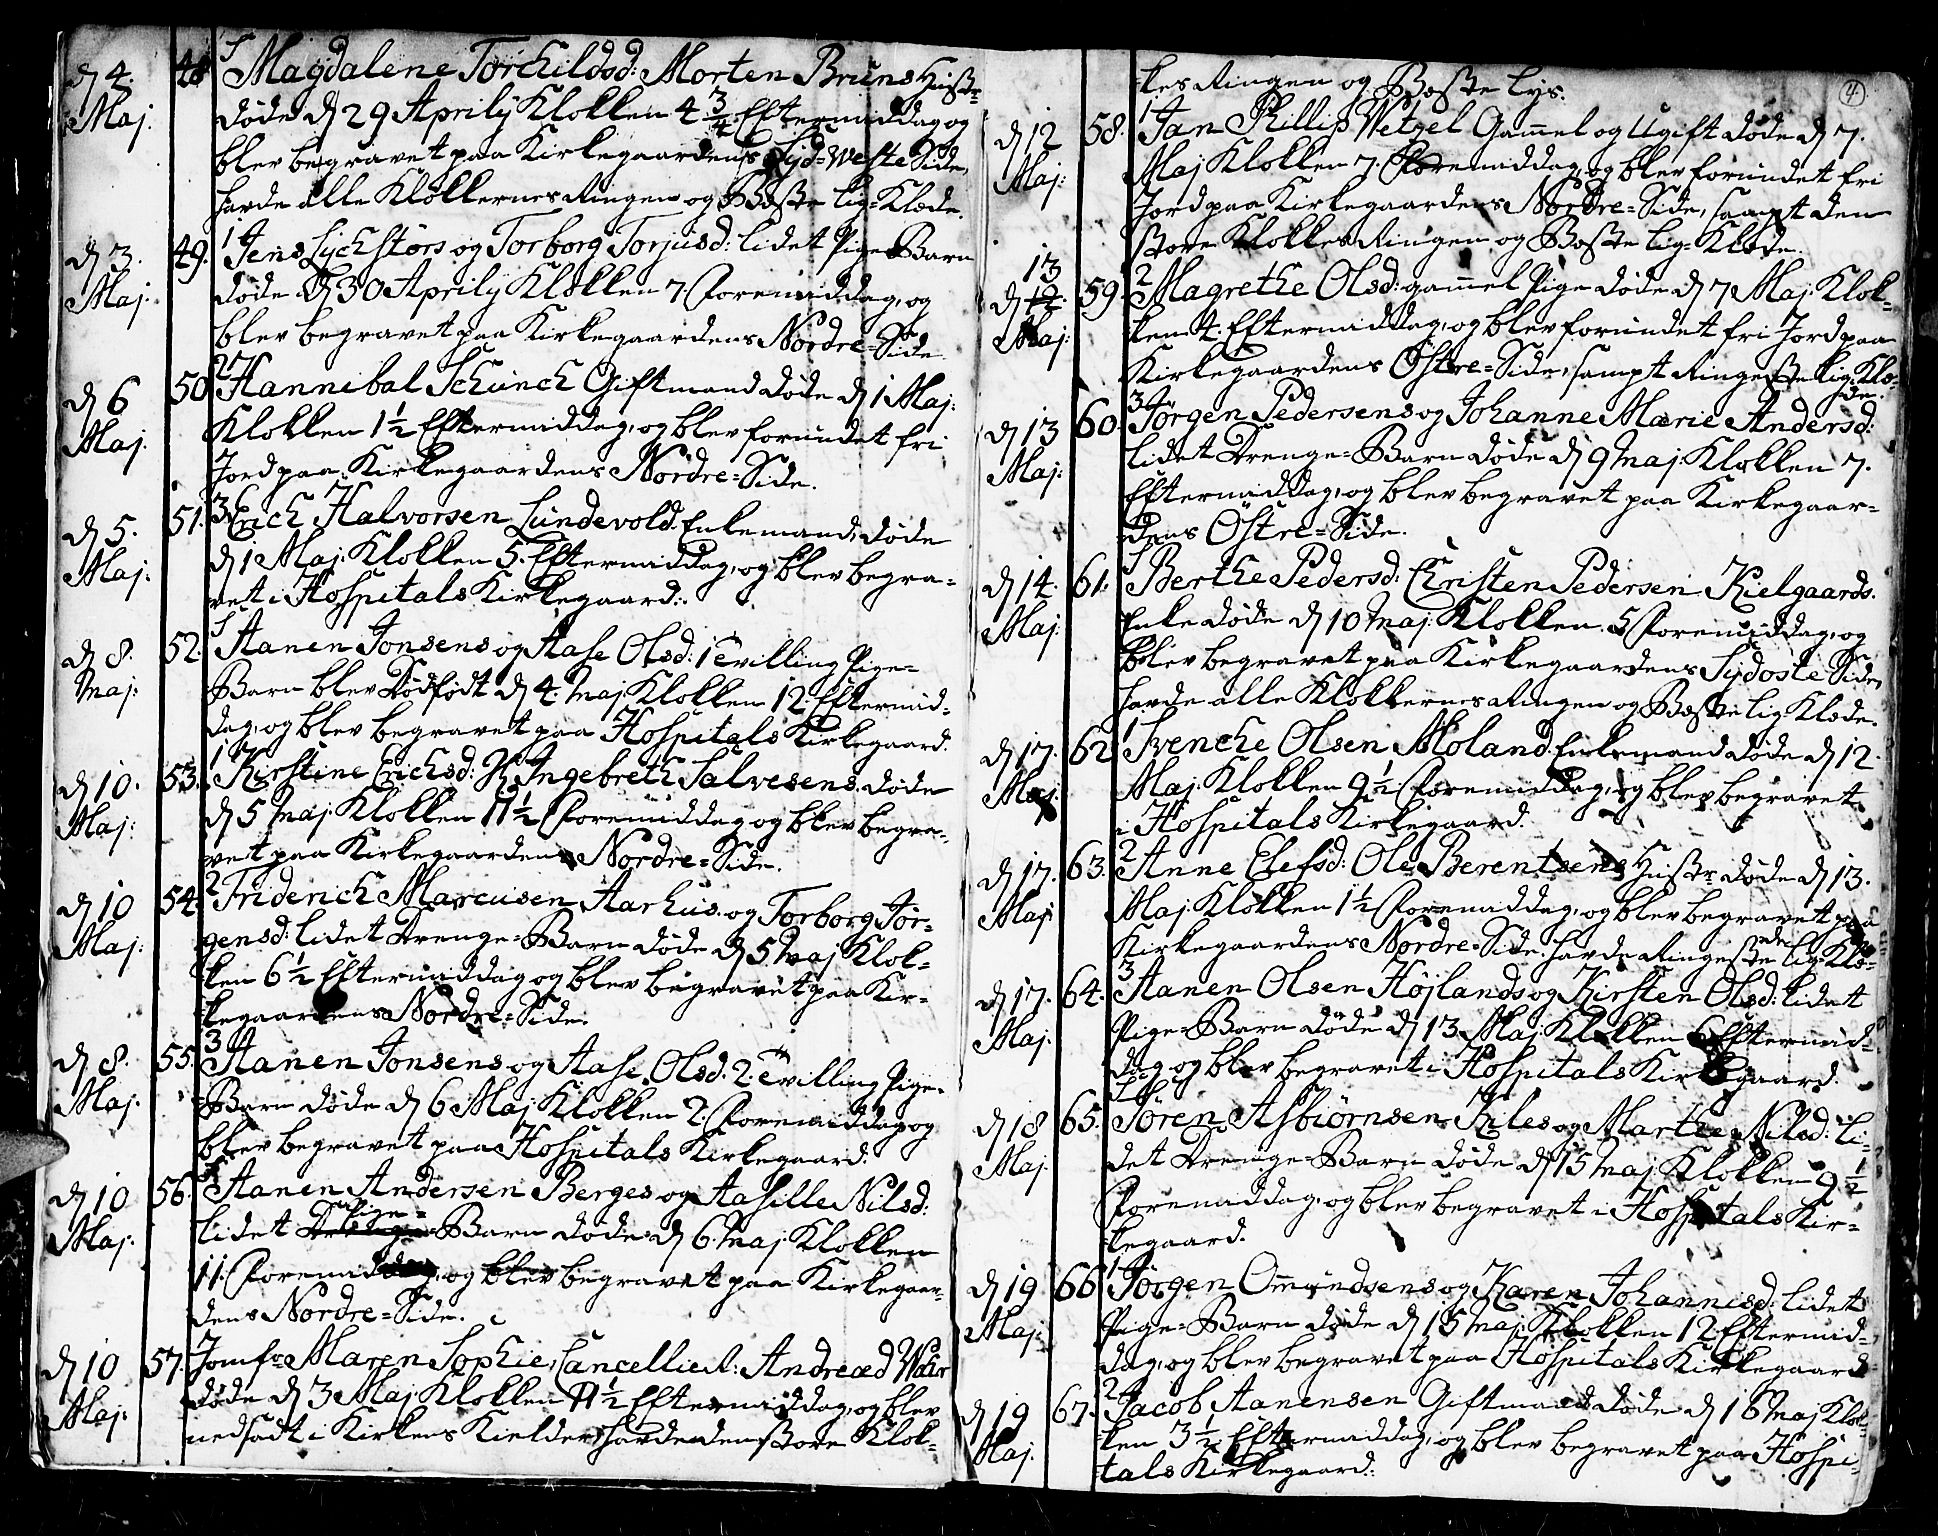 d 4. 48 Magdalene Torchildsd: Morten Bruns Hustr.
Maj: døde d 29 Aprily Klokken 4 3/4 Eftermiddag og
blev begravet paa Kirkegaardens Syd=Weste Side,
havde alle Klokkernes Ringen og Beste Lig=Klæde.
d 3. 49. 1 Jens Lychstørs og Torborg Torjusd: lidet Pige=Barn
Maj: døde d 30 Aprily Klokken 7 Foremiddag, og
blev begravet paa Kirkegaardens Nordre=Side
d 6 50 2 Hannibal Schunch Giftmand døde d 1 Maj:
Maj. Klokken 1½ Eftermiddag, og blev forundet fri
Jord paa Kirkegaardens Nordre=Side.
d 5. 51. 3 Erich Halvorsen Lundevold Enkemand, døde
Maj: d 1 Maj: Klokken 5. Eftermiddag, og blev begra=
vet i Hospitals Kirkegaard.
d 8. 52. Aanen Jonsens og Aase Olsd: 1 Tvilling Pige=
Maj: Barn blev Dødfødt d 4. Maj Klokken 12 Eftermid=
dag, og blev begravet paa Hospitals Kirkegaard.
d 10. 53. 1 Kirstine Erichsd: Ingebreth Salvesens døde
Maj: d 5 Maj: Klokken 11½ Foremiddag og blev begra=
vet paa Kirkegaardens Nordre=Side.
d 10 54. 2 Friderich Marcusen Aarhus og Torborg Jør=
Maj: gensd: lidet Drenge=Barn døde d 5 Maj Klok=
ken 6½ Eftermiddag og blev begravet paa Kir=
kegaardens Nordre=Side.
d 8. 55. 3 Aanen Jonsens og Aase Olsd. 2. Tvilling Pige=
Maj: Barn døde d 6 Maj Klokken 2. Foremiddag og
blev begravet paa Hospitals Kirkegaard.
d 10 56. Aanen Andersen Berges og Aasille Nilsd:
Maj: lidet Pige=Barn døde d 6. Maj. Klokken
11. Foremiddag, og blev begravet paa Kirkegaar=
dens Nordre=Side.
d 10 57. Jomfr Maren Sophie, Cancellie Andreæd
Maj: døde d 3 Maj. Klokken 11½ Eftermiddag, og blev
nedsadt i Kirkens Kielder, havde den store Klok=
4
kes Ringen og Beste Lys.
d 12 58. 1 Jan Phillip Wetzel Gammel og Ugift døde d 7.
Maj: Maj Klokken 7. Foremiddag, og blev forundet fri
Jord paa Kirkegaardens Nordre=Side, sampt den
store Klokkes Ringen og Beste Lig=Klæde.
13
d 12. 59. 2 Magrethe Olsd: gammel Pige døde d 7 Maj: Klok=
Maj: ken 4. Eftermiddag, og blev forundet fri Jord paa
Kirkegaardens Østre=Side, sampt Ringeste Lig Klæ=
de.
d 13 60. 3 Jørgen Pedersens og Johanne Marie Andersd:
Maj: lidet Drenge=Barn døde d 9 Maj: Klokken 7.
Eftermiddag, og blev begravet paa Kirkegaar=
dens Østre=Side.
d 14. 61. Berthe Pedersd: Christen Pedersen Kielgaards.
Maj: Enke døde d 10 Maj: Klokken 5 Foremiddag, og
blev begravet paa Kirkegaardens Sydoste Side,
havde alle Klokkernes Ringen og Beste Lig Klæde.
d 17. 62. 1 Svenche Olsen Moland Enkemand døde d 12.
Maj. Maj. Klokken 9½ Foremiddag, og blev begravet
i Hospitals Kirkegaard.
d 17. 63. 2 Anne Elefsd: Ole Berentsens Hustr døde d 13.
Maj: Maj: Klokken 1½ Foremiddag, og blev begravet paa
Kirkegaardens Nordre=Side, havde Ringeste Lig Klæ=
de
d 17. 64. 3 Aanen Olsen Højlands og Kirsten Olsd: lidet
Maj: Pige=Barn døde d 13 Maj Klokken 6 Eftermid=
dag og blev begravet i Hospitals Kirkegaard.
d 18 65. Søren Asbiørnsen Kiles og Marthe Nilsd: li=
Maj: det Drenge=Barn døde d 15 Maj: Klokken 9½
Foremiddag, og blev begravet i Hospitals Kir=
kegaard.
d 19 66 1 Jørgen Omundsens og Karen Johannisd: lidet
Maj: Pige=Barn døde d 15 Maj: Klokken 12 Eftermid=
dag, og blev begravet paa Hospitals Kirkegaard
d 19 67. 2 Jacob Aanensen Giftmand døde d 16 Maj Klok=
Maj. ken 3½ Eftermiddag, og blev begravet paa Hospi=
tals Kirkegaard.